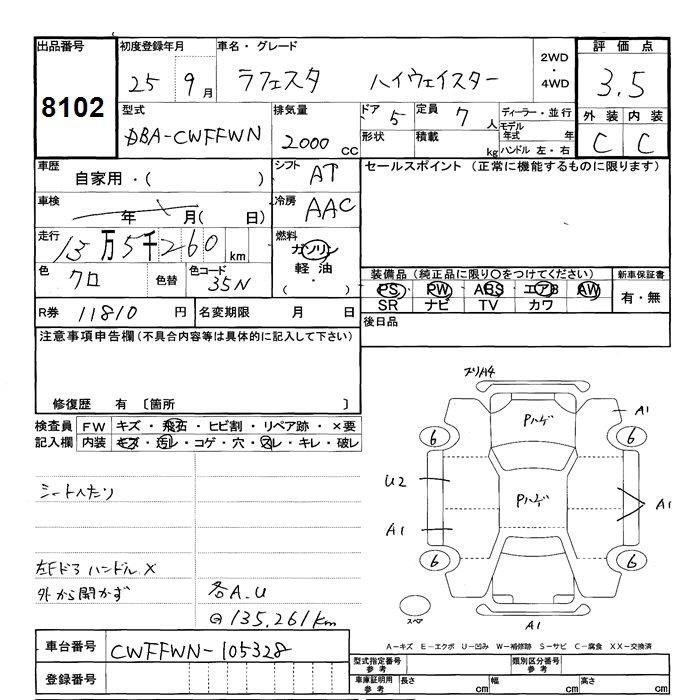 出品番号 初度登録年月 車名・グレード 2WD・4WD 評価点
8102 25 9月 ラフェスタ ハイウェイスター 3.5
型式 排気量 ドア 5 定員 7人 ディーラー・並行 外装 内装
DBA-CWFFWN 2000 CC 形状 積載 kg モデル年式 年 ハンドル 左・右 C C
車歴 自家用・( ) シフト AT セールスポイント (正常に機能するものに限ります)
車検 年 月( 日) 冷房 AAC
走行 13万5千260 km 燃料 ガソリン
軽油
( ・ )
色 クロ 色替 色コード 35N 装備品 (純正品に限り○をつけてください) 新車保証書
PS PW ABS エアB AW 有・無
SR ナビ TV カワ
R券 11810 円 名変期限 月 日 後日品
注意事項申告欄(不具合内容等は具体的に記入して下さい)
修復歴 有 〔箇所 〕
検査員 FW キズ・飛石・ヒビ割・リペア跡・×要
記入欄 内装 キズ・汚レ・コゲ・穴・スレ・キレ・破レ
シートへたり
左Fドア ハンドル X
外から開かず 各A.U
@135,261km
スリA4
Pハゲ A1
6 6
U2 Pハゲ
A1 A1
6 6
スペア A1
A-キズ E-エクボ U-凹み W-補修跡 S-サビ C-腐食 XX-交換済
車台番号 CWFFWN-105328
型式指定番号 参考 類別区分番号 参考
登録番号 車庫証明用 参考 長さ cm 幅 cm 高さ cm